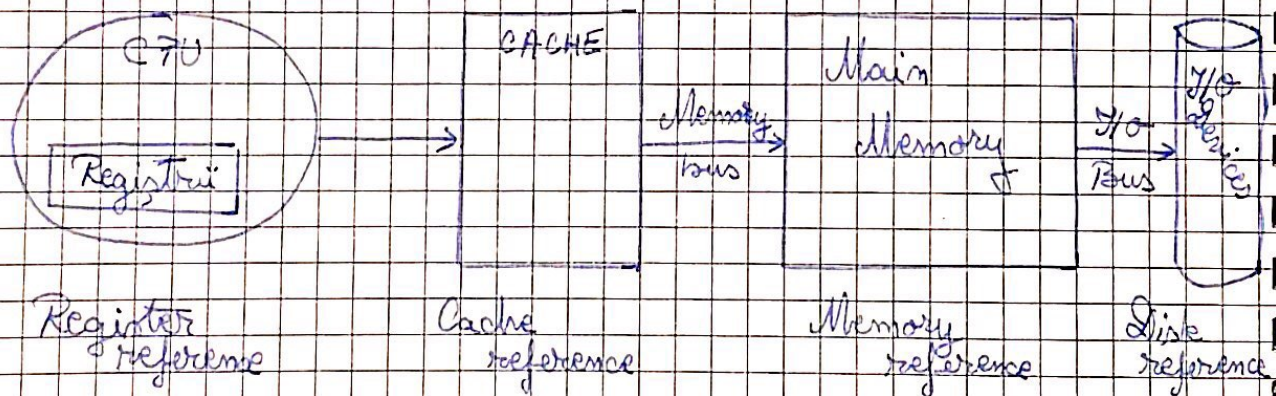 CPU
Registrii
CACHE
Memory
bus
Main
Memory
I/O
Bus
I/O
Devices
Register
reference
Cache
reference
Memory
reference
Disk
reference